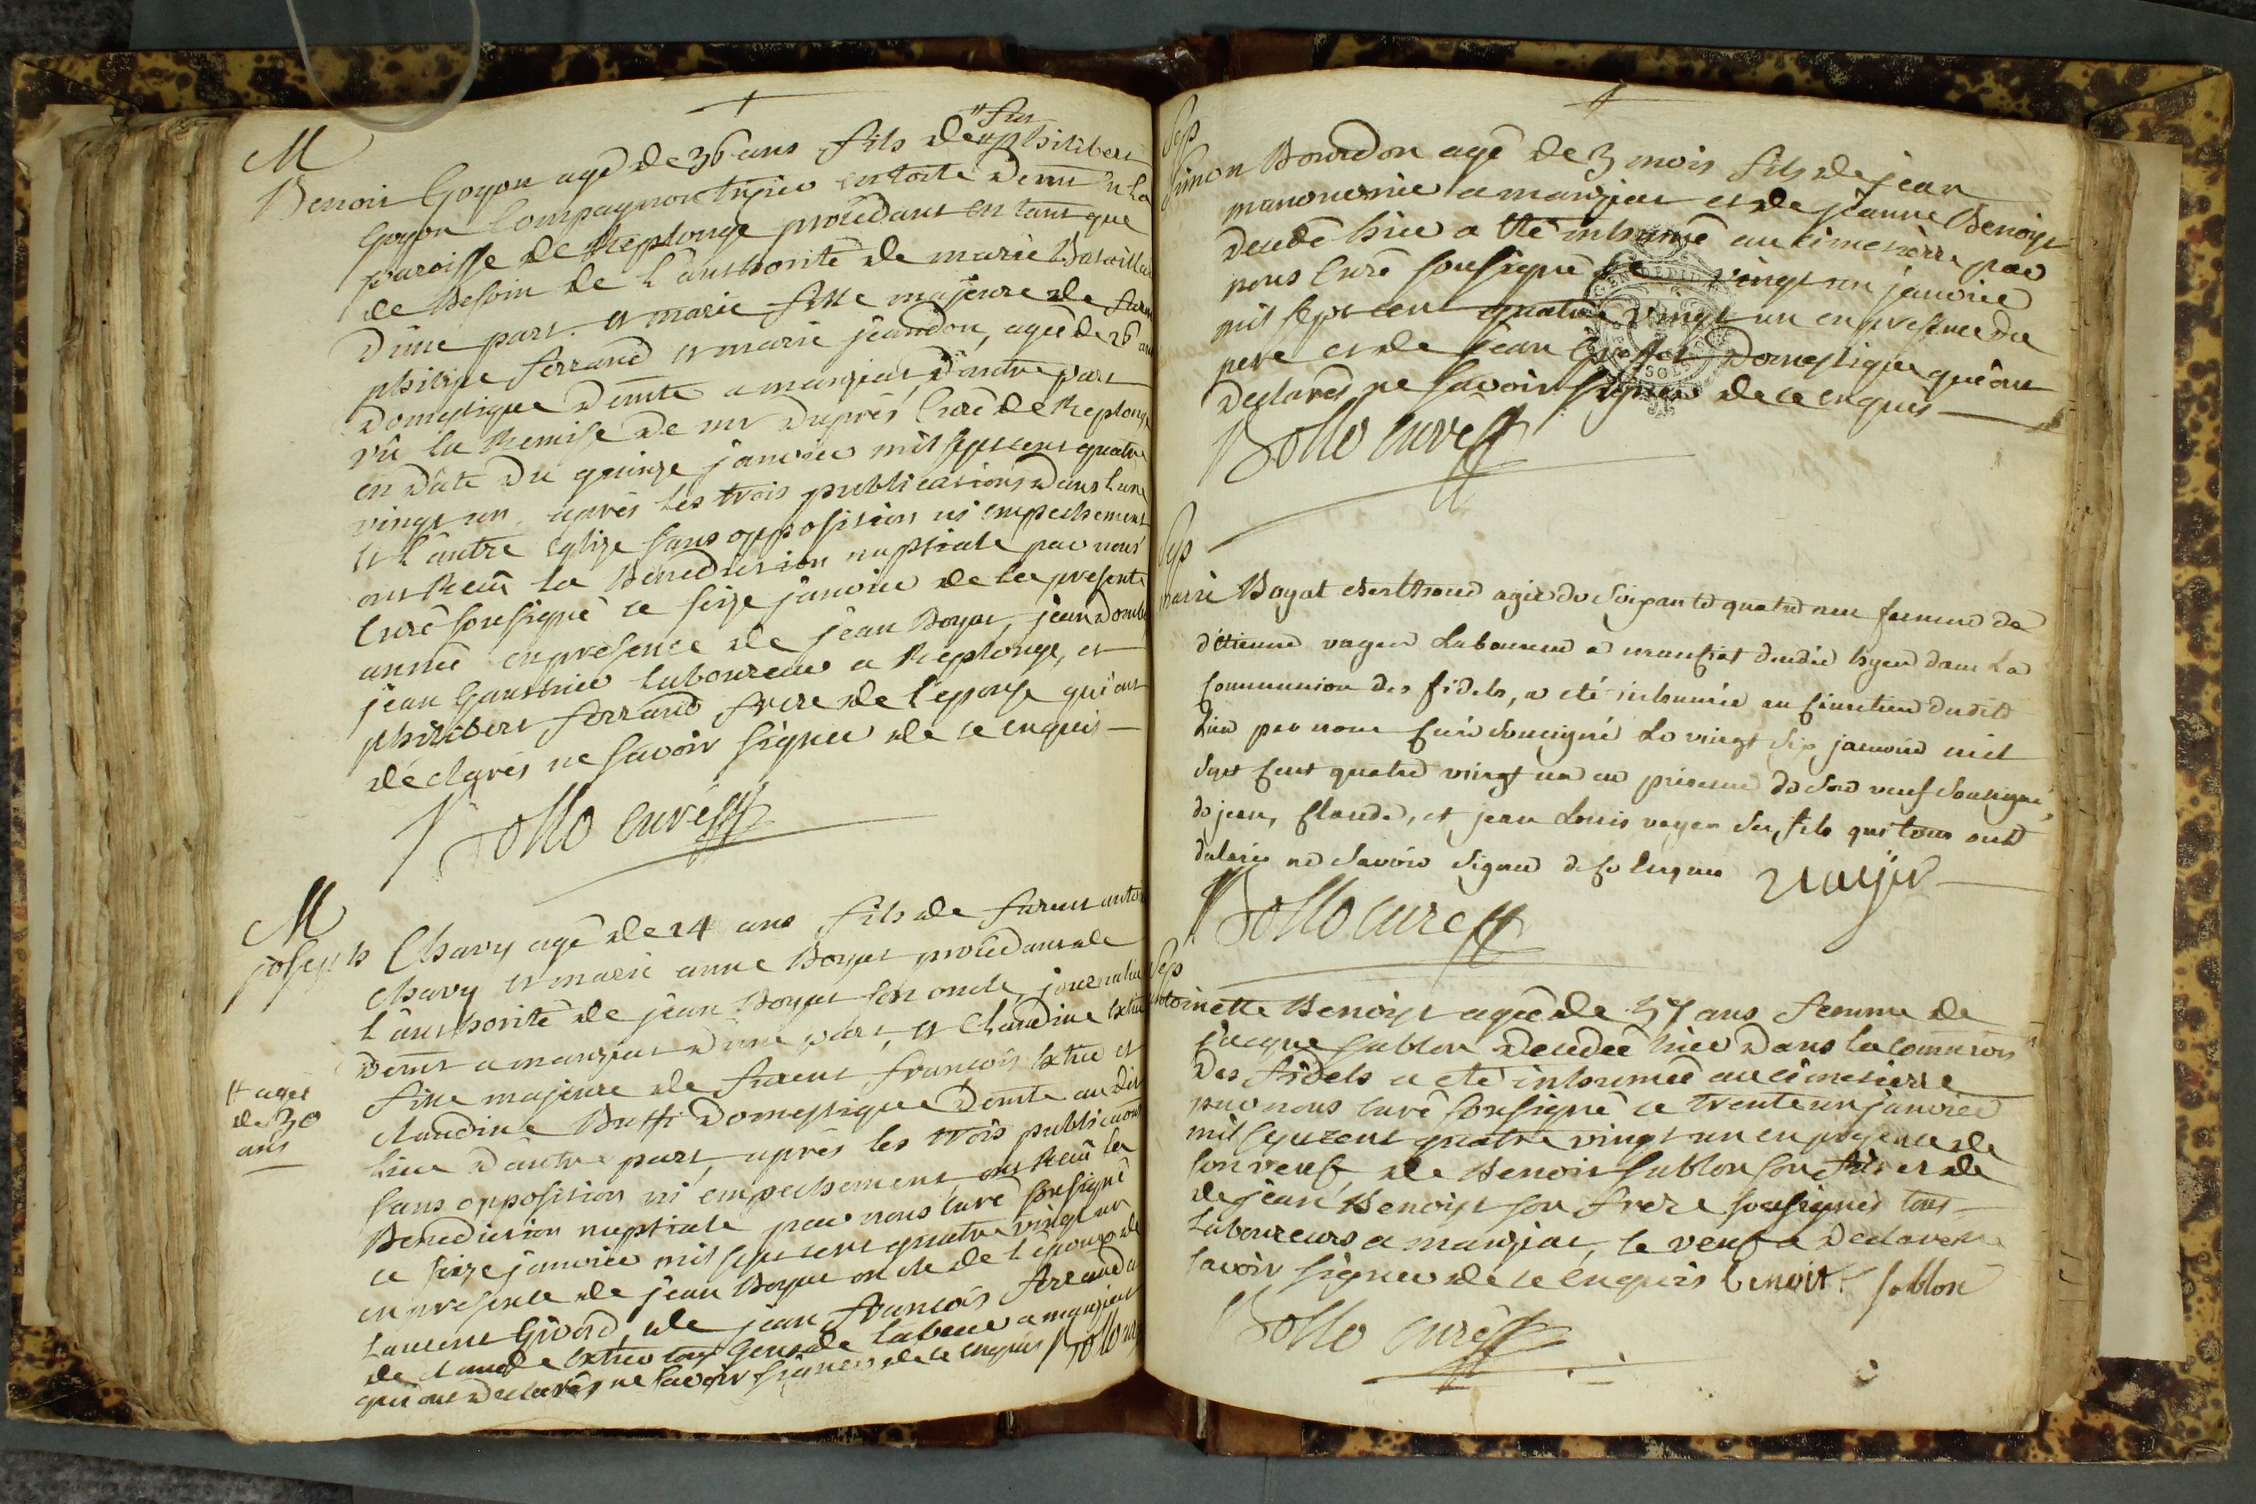 M
Benoit Goyon agé de 36 ans fils de " fut
" philibert
Goyon Compagnon demt en la
paroisse de Replonge procédant en tant que
de Besoin de l'authorité de marie
d'une part. et marie fille majeure de
philipe ferrand et marie jeandon, agée de 26 ans
Domestique demte a manziat d'autre part
vû la Remise de mr Duprés Curé de Replonge
en date du quinze janvier mil sept cent quatre
vingt un, aprés les trois publications dans l'une
et l'autre Eglize sans opposition ni empechement
ont Reçû la Benediction nuptiale par nous
Curé soussigné ce seize janvier de la presente
année en presence de jean Boyat, jean
jean Gauthier laboureur a Replonge, et
philibert ferrand frere de l'epouse qui ont
déclarés ne savoir signer de ce enquis
Bollo curé
M
joseph Chavy agé de 24 ans fils de furent
Chavy et marie anne Boyat procédant de
l'authorité de jean Boyat son oncle, journalier
demt a manziat d'une part, et Claudine
fille majeure de furent françois et
# agée
de 30
ans
claudine Buffi Domestique demte au dit
lieu d'autre part, aprés les trois publications
sans opposition ni empechement, ont Reçû la
Benediction nuptiale par nous curé soussigné
ce seize janvier mil sept cent quatre vingt un
en presence de jean Boyat oncle de l'epoux de
Laurent Givord, de jean françois ferrand
de claude tous gens de labeur a manziat
qui ont declarés ne savoir signer de ce enquis Bollo
Sep
Simon Bourdon agé de 3 mois fils de jean
manouvrier a manziat et de jeanne Benoist
decedé hier a été inhumé au cimetierre par
nous Curé soussigné le vingt un janvier
mil sept cent quatre vingt un en presence du
pere et de jean Domestique qui ont
declarés ne savoir signer de ce enquis
Bollo curé
Sep
marie Bayat agée de soixante quatre ans femme de
d'étienne vayer Laboureur a manziat decedée hyer dans La
Communion des fidels, a eté inhumée au cimetiere dudit
Lieu par nous Curé soussigné Le vingt six janvier mil
sept cent quatre vingt un en présence de son veuf soussigné,
de jean, Claude, et jean Louis vayer ses fils qui tous ont
declarés ne savoir signer de ce Enquis vayer
Bollo curé
Sep
antoinette Benoist agée de 57 ans femme de
jacque sublon decedée hier dans la communion
des fidels a eté inhumée au cimetierre
par nous curé soussigné ce trente un janvier
mil sept cent quatre vingt un en presence de
son veuf, de Benoit sublon son fils et de
de jean Benoist son frere soussignés tous
Laboureurs a manziat, le veuf a declaré ne
savoir signer de ce enquis benoit soblon
Bollo curé